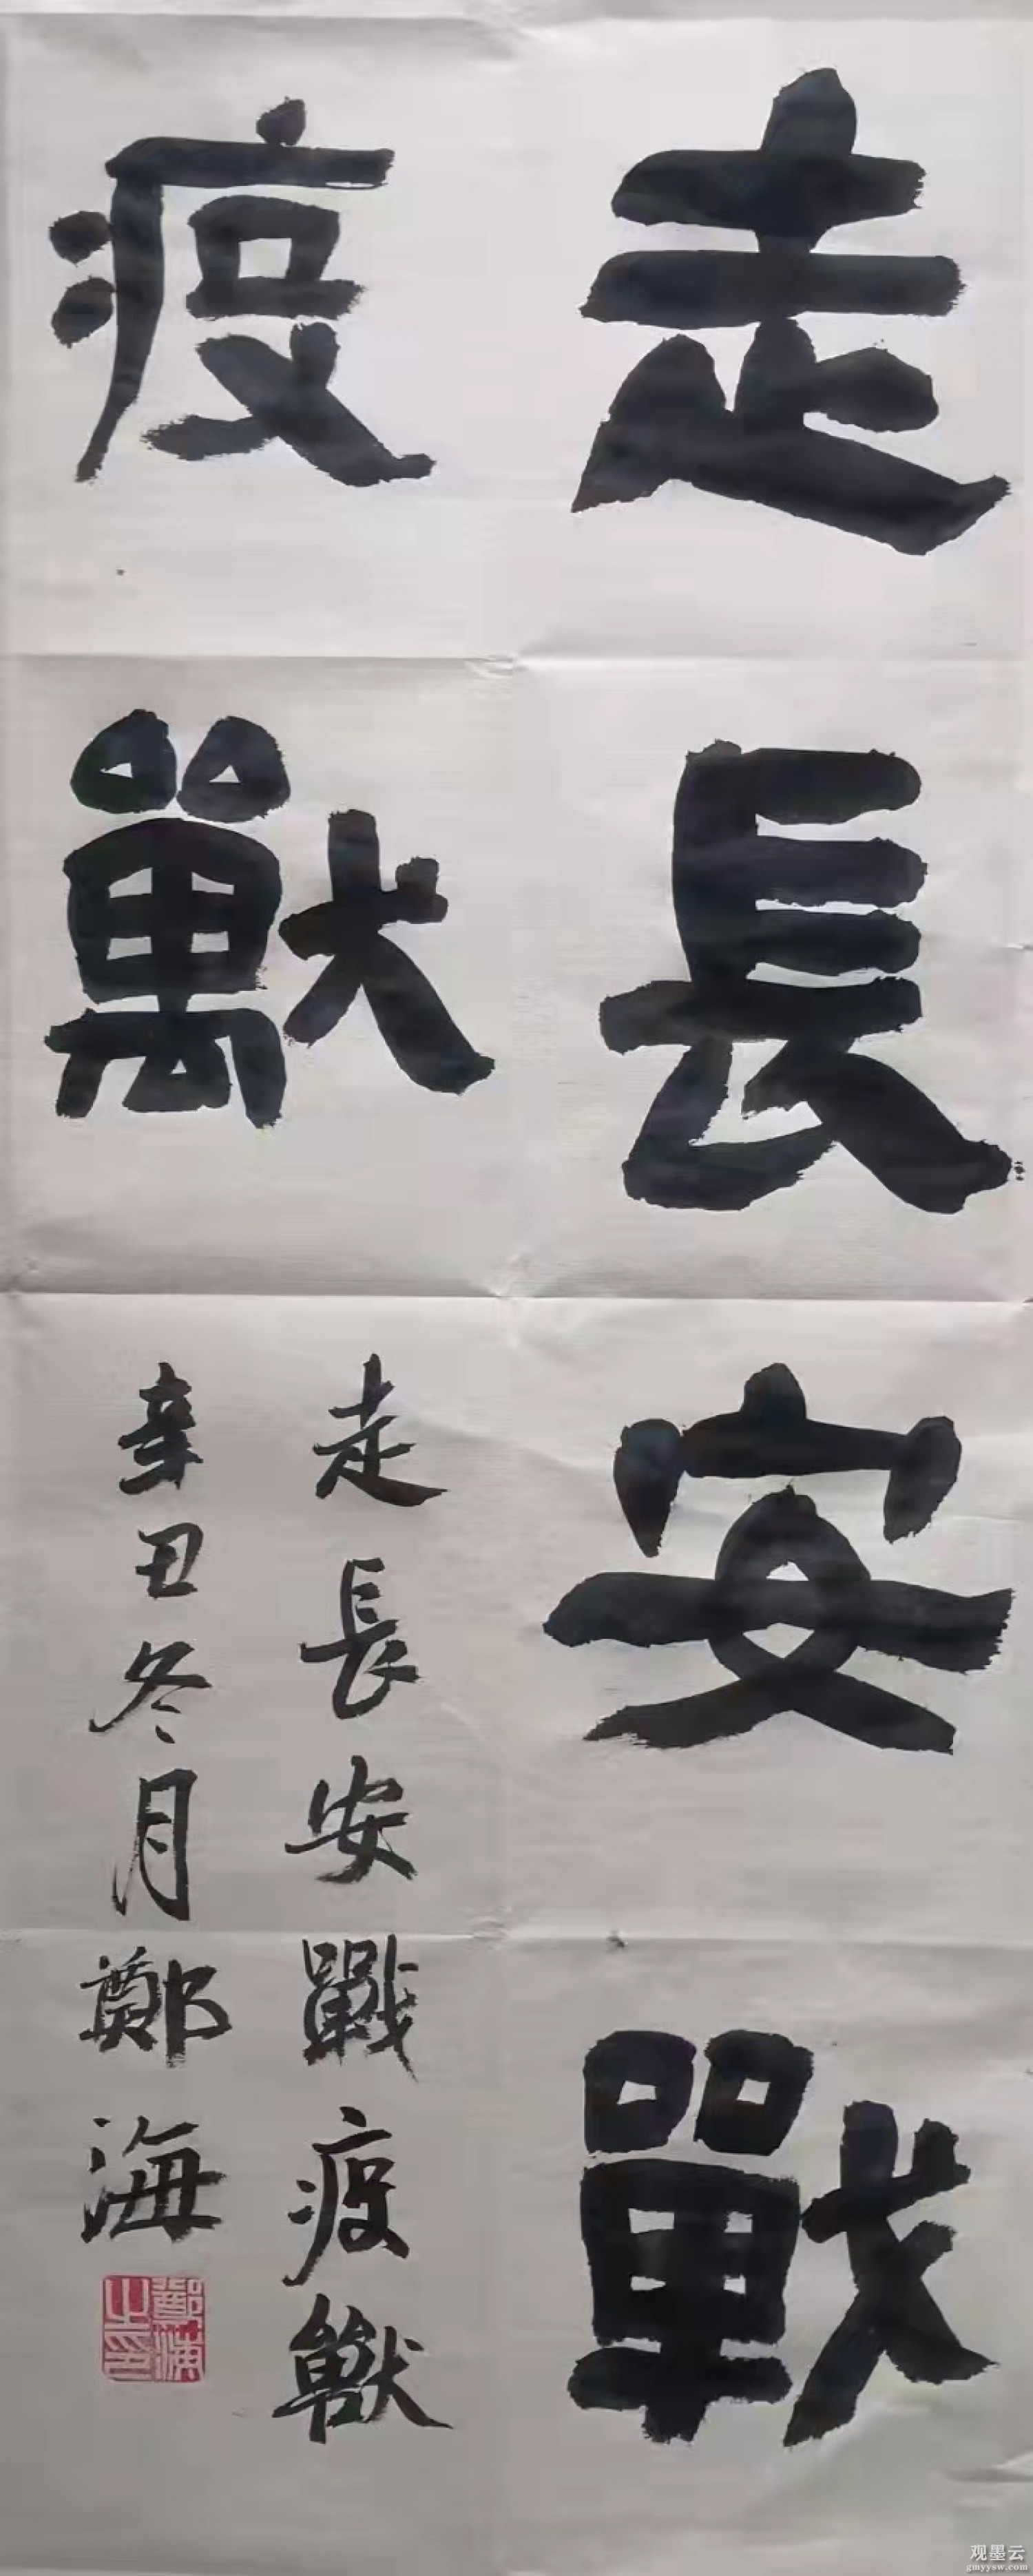 走長安戰
疫獸
走長安戰疫獸
辛丑冬月鄭海
鄭海之印
观墨云
gmyysw.com